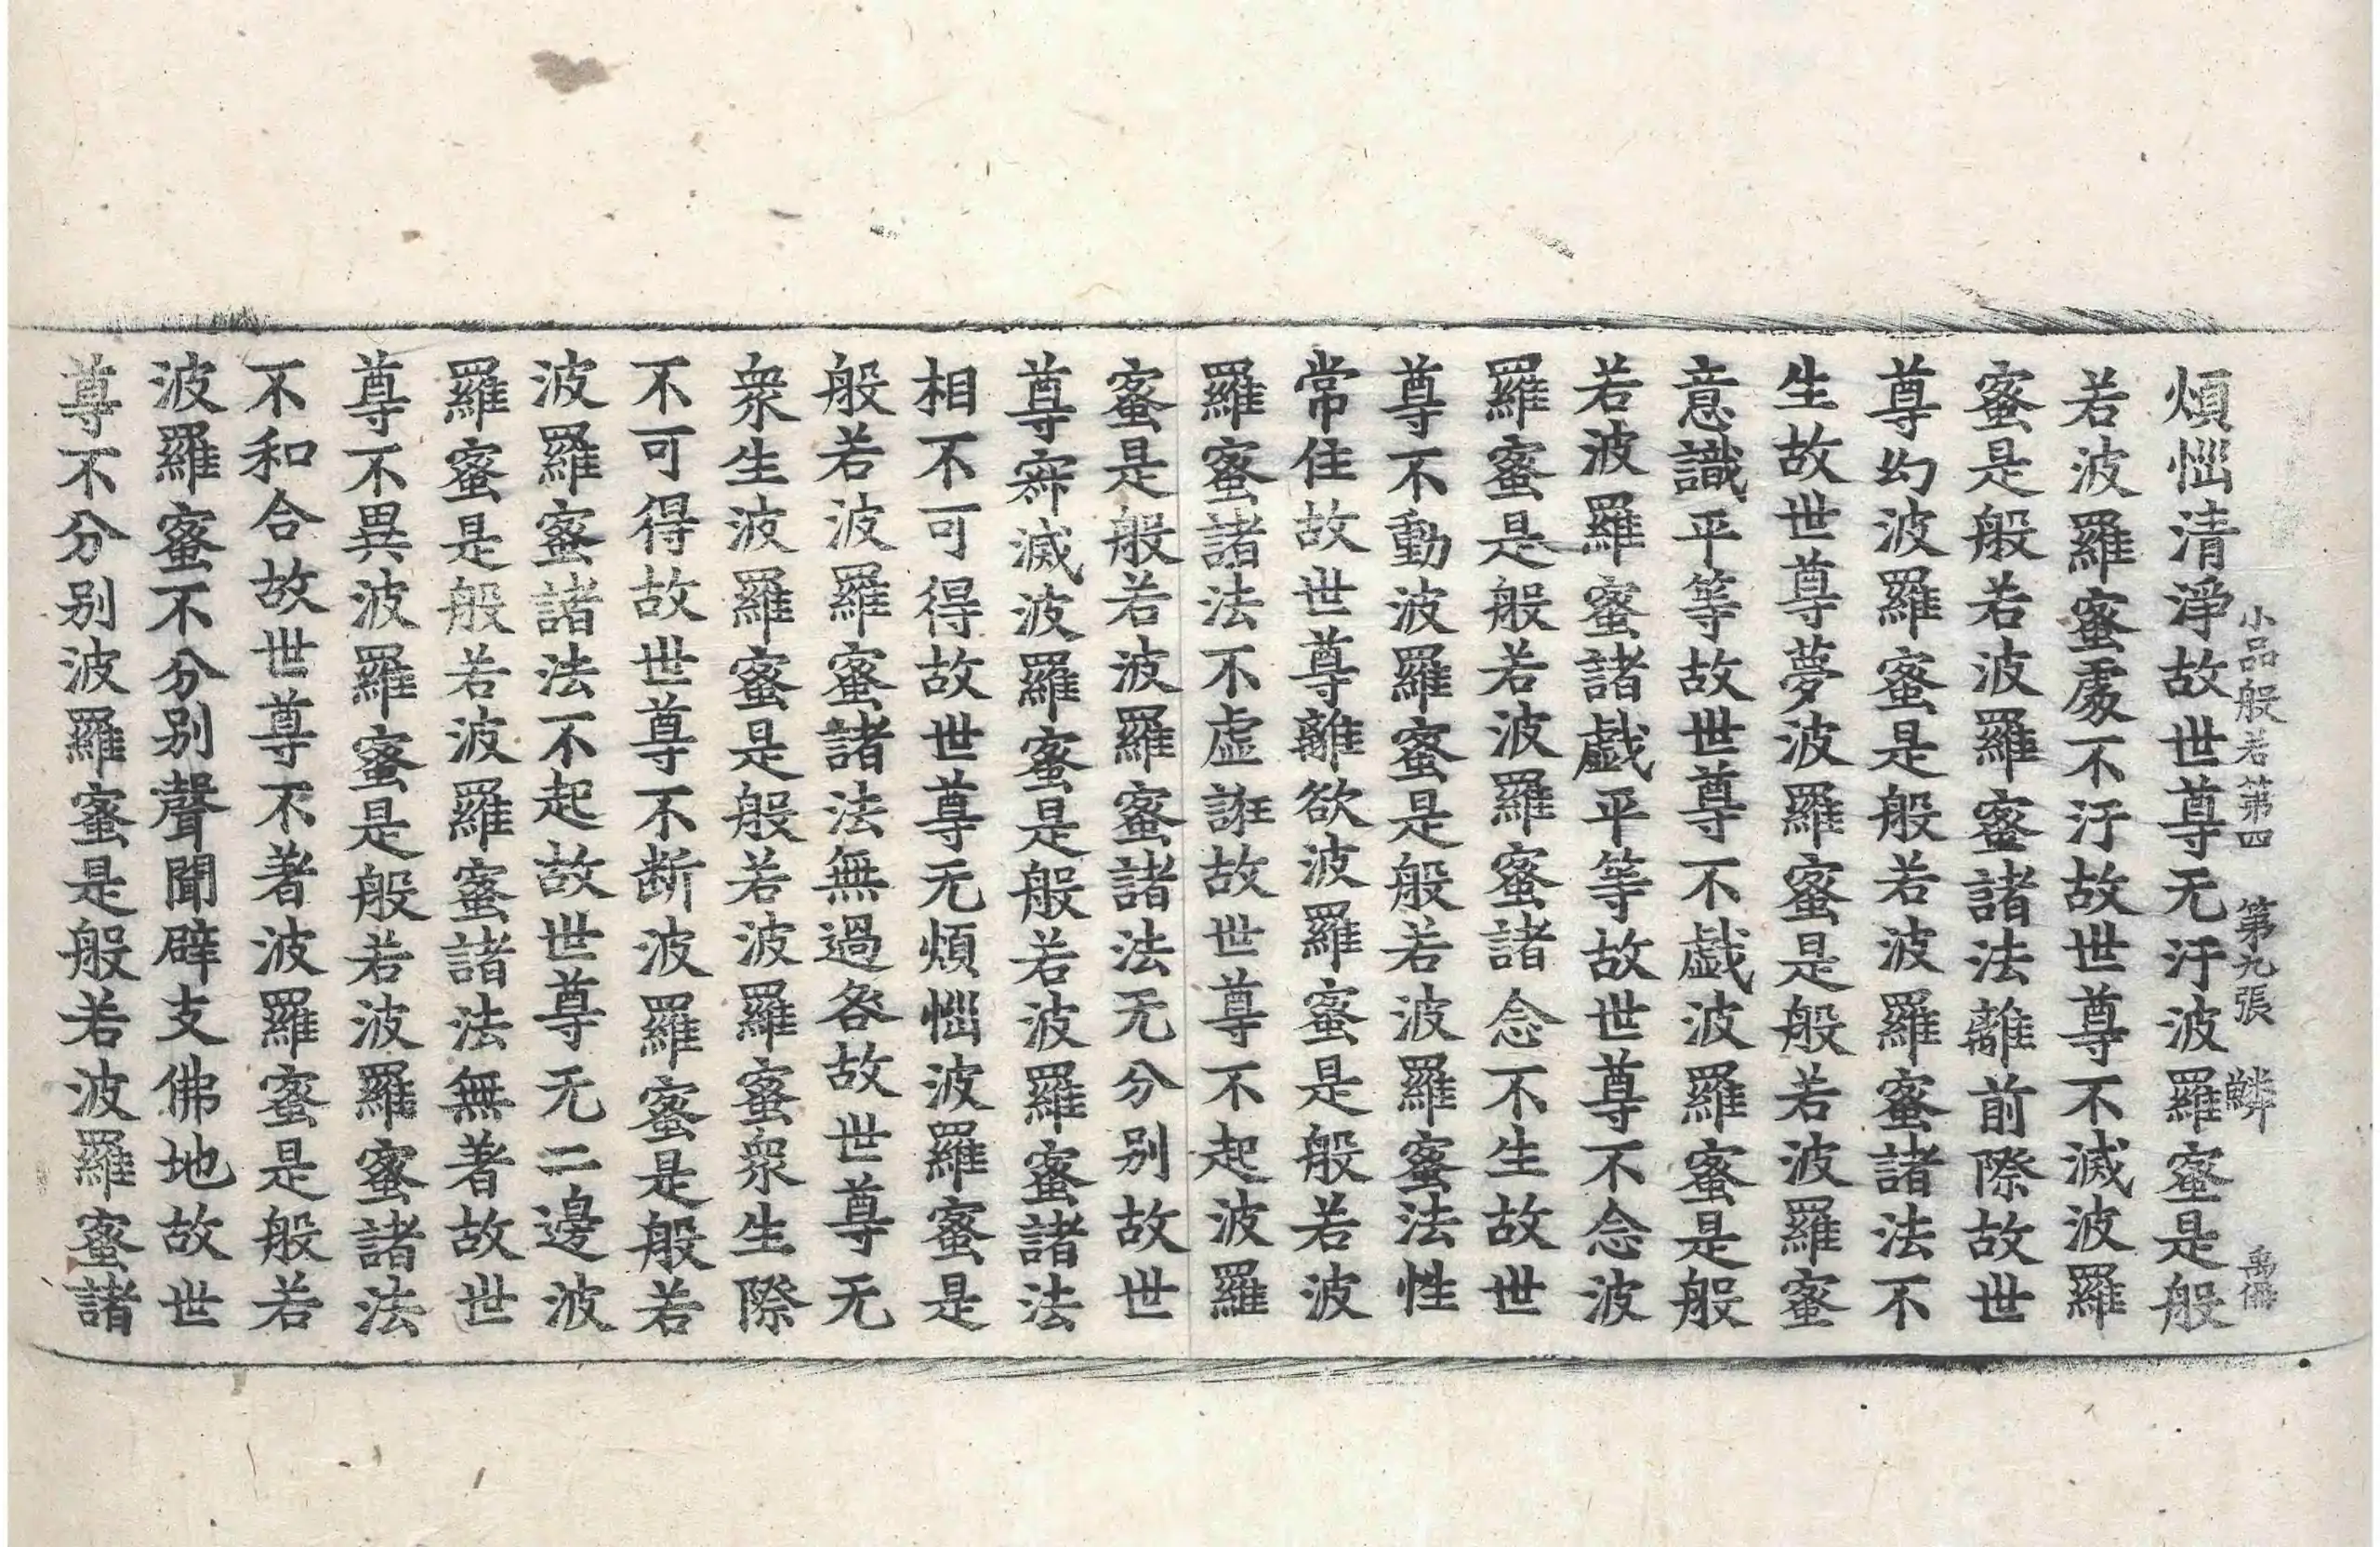 小品般若第四 第九張 鱗
煩惱清淨故世尊无汙波羅蜜是般
若波羅蜜處不汙故世尊不滅波羅
蜜是般若波羅蜜諸法離前際故世
尊幻波羅蜜是般若波羅蜜諸法不
生故世尊夢波羅蜜是般若波羅蜜
意識平等故世尊不戲波羅蜜是般
若波羅蜜諸戲平等故世尊不念波
羅蜜是般若波羅蜜諸念不生故世
尊不動波羅蜜是般若波羅蜜法性
常住故世尊離欲波羅蜜是般若波
羅蜜諸法不虛誑故世尊不起波羅
蜜是般若波羅蜜諸法无分別故世
尊寂滅波羅蜜是般若波羅蜜諸法
相不可得故世尊无煩惱波羅蜜是
般若波羅蜜諸法無過咎故世尊无
衆生波羅蜜是般若波羅蜜衆生際
不可得故世尊不断波羅蜜是般若
波羅蜜諸法不起故世尊无二邊波
羅蜜是般若波羅蜜諸法無著故世
尊不異波羅蜜是般若波羅蜜諸法
不和合故世尊不著波羅蜜是般若
波羅蜜不分別聲聞辟支佛地故世
尊不分別波羅蜜是般若波羅蜜諸